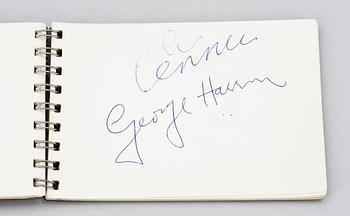 Lennon
George Harrison